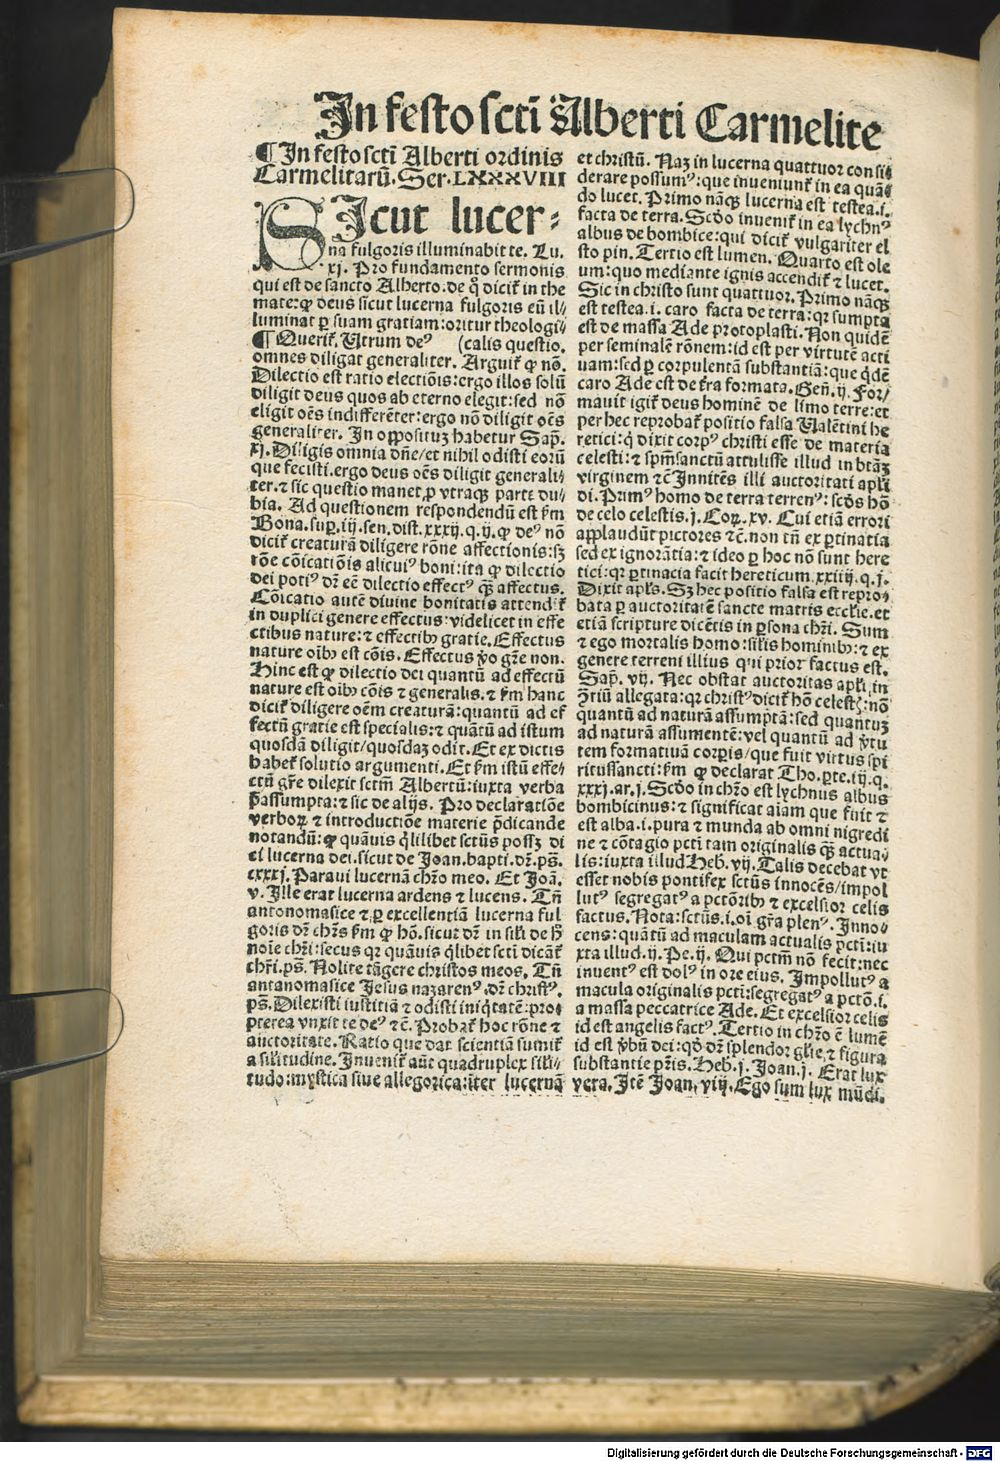 In festo scti Alberti Carmelite
¶ In festo scti Alberti ordinis
Carmelitarū. Ser. LXXXVIII
SIcut lucer-
na fulgoris illuminabit te. Lu.
xj. Pro fundamento sermonis
qui est de sancto Alberto: de q̄ dicit̄ in the
mate: ꝙ deus sicut lucerna fulgoris eū il/
luminat ꝑ suam gratiam: oritur theologi/
¶ Querit̄. Utrum deꝰ (calis questio.
omnes diligat generaliter. Arguit̄ ꝙ nō.
Dilectio est ratio electiōis: ergo illos solū
diligit deus quos ab eterno elegit: sed nō
eligit oēs indifferēter: ergo nō diligit oēs
generaliter. In oppositus habetur Sap̄.
xj. Diligis omnia dn̄e/ et nihil odisti eorū
que fecisti. ergo deus oēs diligit generali/
ter. ⁊ sic questio manet ꝓ vtraqꝫ parte du/
bia. Ad questionem respondendū est ẜm
Bona. suꝑ. iij. sen. dist. xxxij. q. ij. ꝙ deꝰ nō
dicit̄ creaturā diligere rōne affectionis: sꝫ
rōe cōicatiōis alicuiꝰ boni: ita ꝙ dilectio
dei potiꝰ dr̄ eē dilectio effectꝰ qꝫ̄ affectus.
Cōicatio autē diuine bonitatis attendit̄
in duplici genere effectus: videlicet in effe
ctibus nature: ⁊ effectibꝰ gratie. Effectus
nature oībꝰ est cōis. Effectus ꝟo gr̄e non.
Hinc est ꝙ dilectio dei quantū ad effectū
nature est oībꝰ cōis ⁊ generalis. ⁊ ẜm hanc
dicit̄ diligere oēm creaturā: quantū ad ef
fectū gratie est specialis: ⁊ quātū ad istum
quosdā diligit/ quosdaꝫ odit. Et ex dictis
habet̄ solutio argumenti. Et ẜm istū effe/
ctū gr̄e dilexit sctm̄ Albertū: iuxta verba
p̄assumpta: ⁊ sic de alijs. Pro declaratiōe
verboꝝ ⁊ introductiōe materie p̄dicande
notandū: ꝙ quāuis q̄lilibet sctūs possꝫ di
ci lucerna dei. sicut de Joan. bapti. dr̄. ps̄.
cxxxj. Paraui lucernā chr̄o meo. Et Joā.
v. Ille erat lucerna ardens ⁊ lucens. Tn̄
antonomasice ⁊ ꝑ excellentiā lucerna ful
goris dr̄ chr̄s ẜm ꝙ hō. sicut dr̄ in sil'i de h̄
noīe chr̄i: secus qꝛ quāuis q̄libet sctī dicāt̄
chr̄i. ps̄. Nolite tāgere christos meos. Tn̄
antanomasice Jesus nazarenꝰ dr̄ christꝰ.
ps̄. Dilexisti iustitiā ⁊ odisti iniq̄tatē: pro/
pterea vnxit te deꝰ ⁊c̄. Probat̄ hoc rōne ⁊
auctoritate. Ratio que dat scientiā sumit̄
a sil'itudine. Inuenit̄ aūt quadruplex sil'i/
tudo: mystica siue allegorica: īter lucernā
et christū. Naꝫ in lucerna quattuor consi
derare possumꝰ: que inueniunt̄ in ea quā
do lucet. Primo nāqꝫ lucerna est testea. i.
facta de terra. Scd̄o inuenit̄ in ea lychnꝰ
albus de bombice: qui dicit̄ vulgariter el
sto pin. Tertio est lumen. Quarto est ole
um: quo mediante ignis accendit̄ ⁊ lucet.
Sic in christo sunt quattuor. Primo nāqꝫ
est testea. i. caro facta de terra: qꝛ sumpta
est de massa Ade protoplasti. Non quidē
per seminalē rōnem: id est per virtutē acti
uam: sed ꝑ corpulentā substantiā: que q̄dē
caro Ade est de t̄ra formata. Gen̄. ij. For/
mauit igit̄ deus hominē de limo terre: et
per hec reprobat̄ positio falsa Valētini he
retici: q̄ dixit corpꝰ christi esse de materia
celesti: ⁊ sp̄msanctū attulisse illud in btāꝫ
virginem ⁊c̄ Innitēs illi auctoritati apl'i
di. Primꝰ homo de terra terrenꝰ: scd̄s hō
de celo celestis. j. Coꝝ. xv. Cui etiā errori
applaudūt pictores ⁊c̄. non tn̄ ex ꝑtinatia
sed ex ignorātia: ⁊ ideo ꝑ hoc nō sunt here
tici: qꝛ ꝑtinacia facit hereticum. xxiiij. q. j.
Dixit apl's. Sꝫ hec positio falsa est repro/
bata ꝑ auctoritatē sancte matris eccl'ie. et
etiā scripture dicētis in ꝑsona chr̄i. Sum
⁊ ego mortalis homo: sil'is hominibꝰ: ⁊ ex
genere terreni illius qui prior factus est.
Sap̄. vij. Nec obstat auctoritas apl'i in
ꝯtriū allegata: qꝛ christꝰ dicit̄ hō celestꝭ: nō
quantū ad naturā assumptā: sed quantuꝫ
ad naturā assumentē: vel quantū ad ꝟtu
tem formatiuā corꝑis/ que fuit virtus spi
ritussancti: ẜm ꝙ declarat Tho. ꝑte. iij. q.
xxxj. ar. j. Scd̄o in chr̄o est lychnus albus
bombicinus: ⁊ significat aīam que fuit ⁊
est alba. i. pura ⁊ munda ab omni nigredi
ne ⁊ cōtagio pctī tam originalis qꝫ̄ actua/
lis: iuxta illud Heb. vij. Talis decebat vt
esset nobis pontifex sctūs innocēs/ impol
lutꝰ segregatꝰ a pctōribꝰ ⁊ excelsior celis
factus. Nota: sctūs. i. oī gr̄a plenꝰ. Inno/
cens: quātū ad maculam actualis pctī: iu
xta illud. ij. Pe. ij. Qui pctm̄ nō fecit: nec
inuentꝰ est dolꝰ in ore eius. Impollutꝰ a
macula originalis pctī: segregatꝰ a pctō. i.
a massa peccatrice Ade. Et excelsior celis
id est angelis factꝰ. Tertio in chr̄o ē lumē
id est ꝟbū dei: qd̄ dr̄ splendor gl'ie ⁊ figura
substantie pr̄is. Heb. j. Joan. j. Erat lux
vera. Itē Joan. viij. Ego sum lux mūdi.
Digitalisierung gefördert durch die Deutsche Forschungsgemeinschaft - DFG